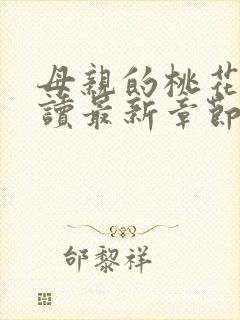 母親的桃花
讀最新章節
邰黎祥